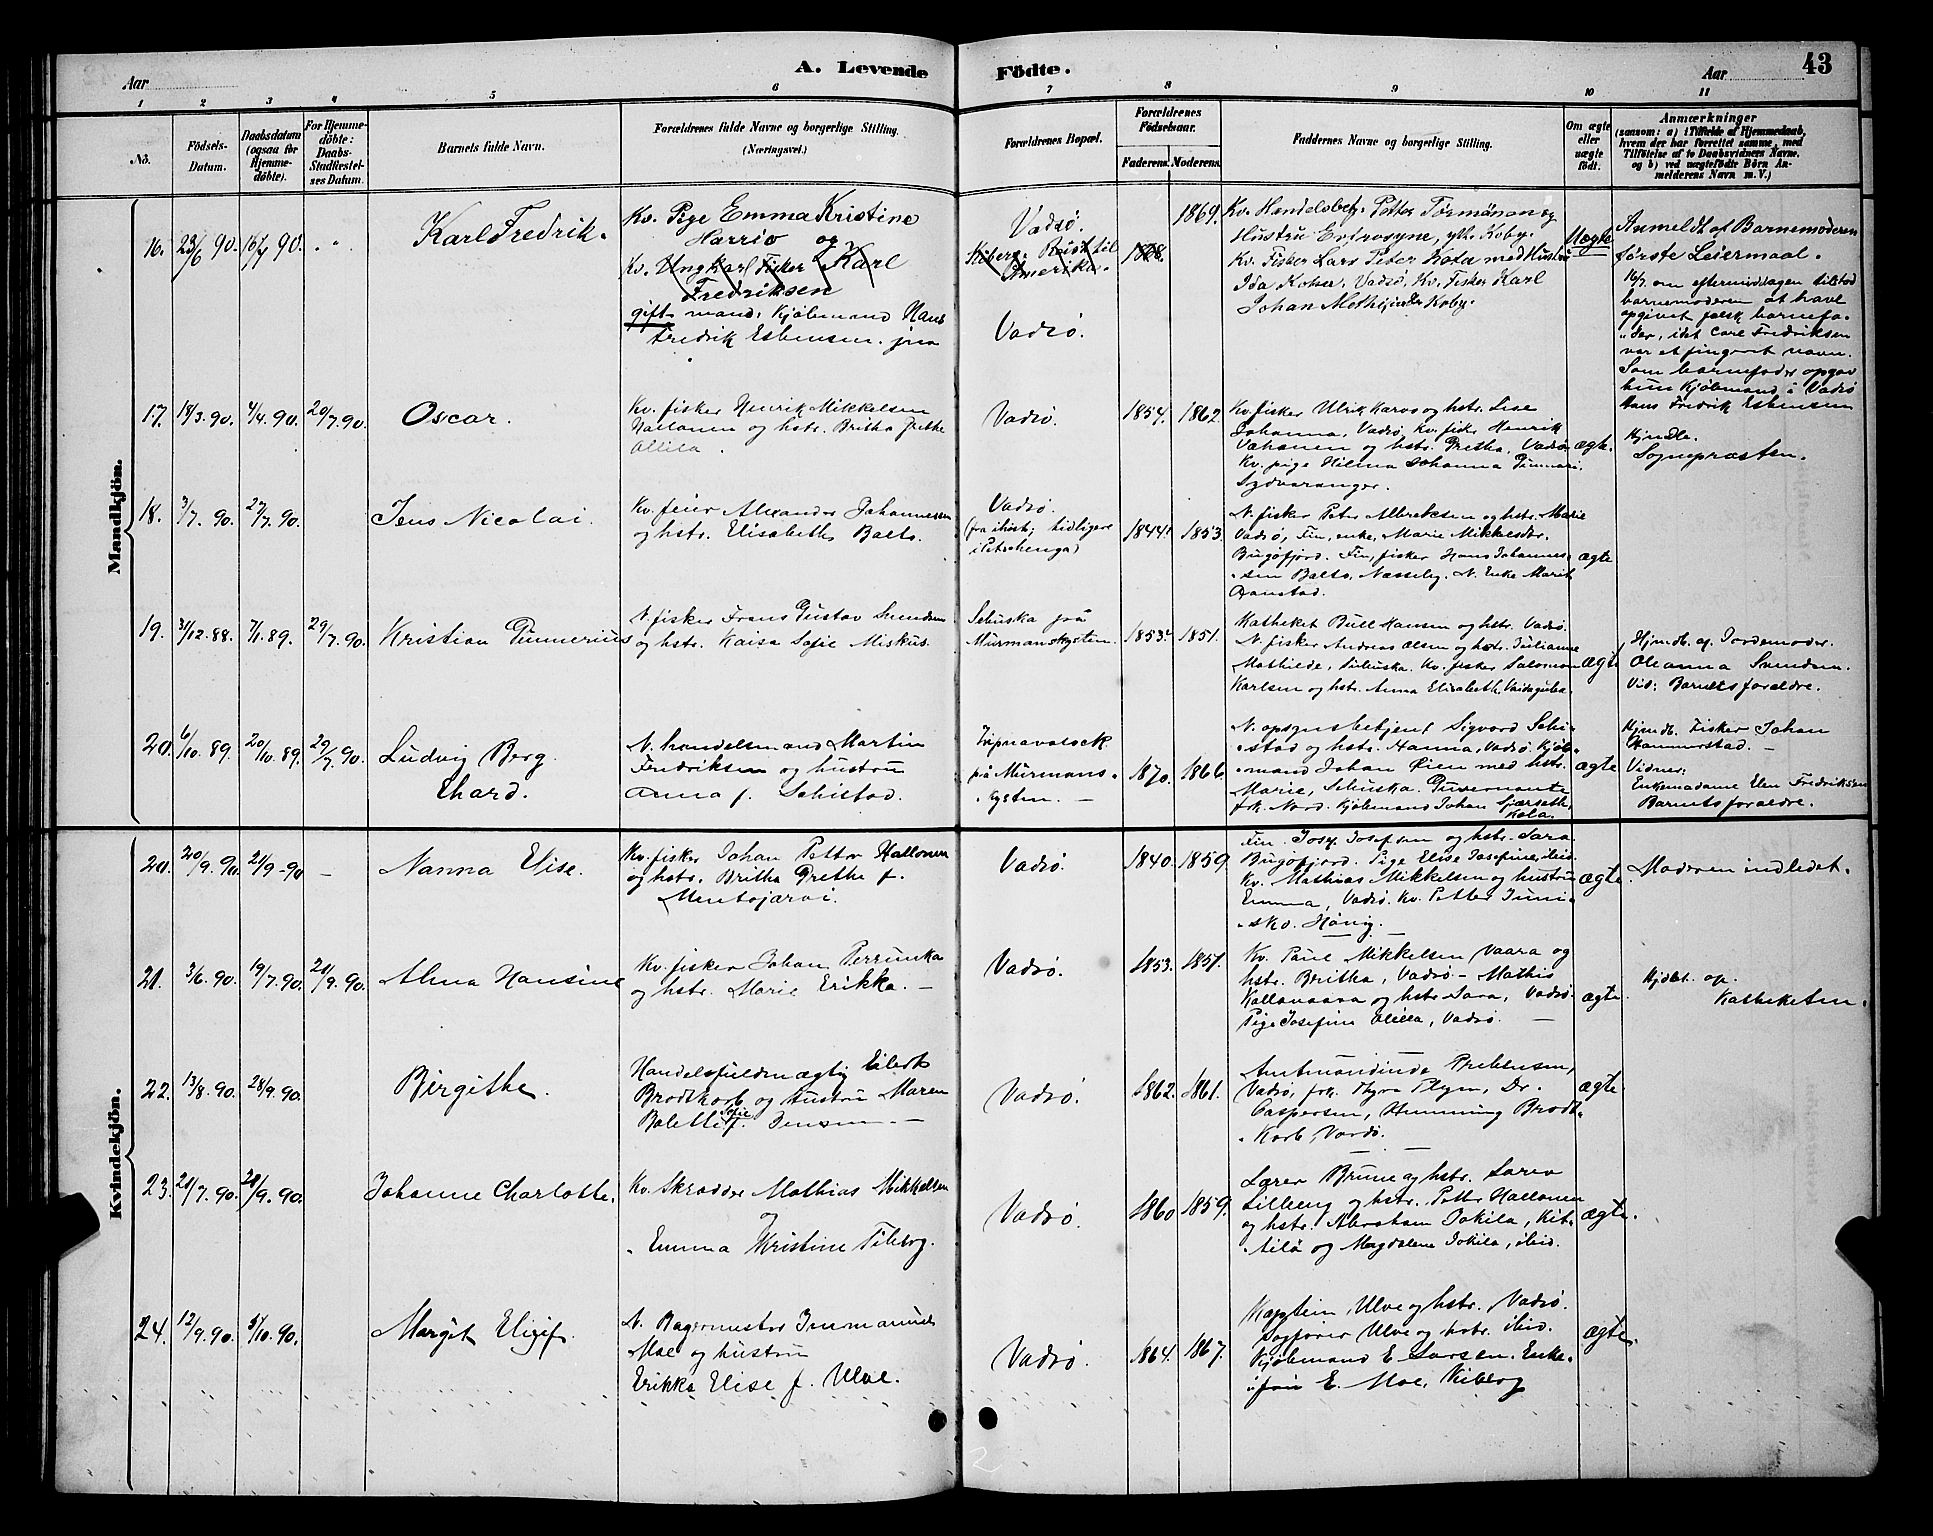 Aar
A. Levende
Födte.
Aar
43
1 2 3 4 5 6 7 8 9 10 11
No.
Födsels-
Datum.
Daabsdatum
(ogsaa for
Hjemme-
döbte).
For Hjemme-
döbte:
Daabs-
Stadfæstel-
ses Datum.
Barnets fulde Navn.
Forældrenes fulde Navne og borgerlige Stilling.
(Næringsvei.)
Forældrenes Bopæl.
Forældrenes
Födselsaar.
Faderens. Moderens.
Faddernes Navne og borgerlige Stilling.
Om ægte
eller
uægte
födt.
Anmærkninger
(saasom: a) i Tilfælde af Hjemmedaab,
hvem der har forrettet samme, med
Tilföielse af to Daabsvidners Navne,
og b) ved uægtefödte Börn An-
melderens Navn m. V.)
Mandkjön.
16. 23/6 90. 16/7 90. Karl Fredrik.
Kv. Pige Emma Kristine
Harrio og
Kv. Ungkarl Fisker Karl
Fredriksen
gift mand: Kjøbmand Hans
Fredrik Esbensen
Vadsø.
Kiberg. Reist til
Amerika.
Vadsø.
1868. 1869.
Kv. Handelsbetj. Petter Tørmänen og
Hustru Evfrosyne, Koby.
Kv. Fisker Lars Peter Kota med Hustru
Ida Vadsø, Kv. Fisker Karl
Johan Koby.
Uægte
Anmeldt af Barnemoderen
første Leiermaal.
16/7. om eftermiddagen tilstod
barnemoderen at have
opgivet falsk barnefa-
der, idet Carl Fredriksen
var et fingeret navn.
Som barnefader opgav
hun Kjøbmand i Vadsø
Hans Fredrik Esbensen
17. 18/3. 90. 4/4. 90. 20/7. 90. Oscar.
Kv. fisker Henrik Mikkelsen
og hstr. Britha Grethe
Ollila.
Vadsø. 1854. 1862.
Kv. fisker Ulrik Karvo og hstr. Lise
Johanna, Vadsø, Kv. fisker Henrik
og hstr. Gretha, Vadsø
Kv. pige Hilma Johanna
Sydvaranger.
ægte.
Hjmdb.
Sognepræsten.
18. 3/7. 90. 27/7. 90. Jens Nicolai.
Kv. feier Alexander Johannessen
og hstr. Elisabeth Balto.
Vadsø.
(fra ihøst; tidligere
i Petschenga)
1844. 1853.
N. fisker Peter Albretsen og hstr. Marie
Vadsø, Fin, enke, Marie Mikkelsdtr.
Bugøfjord. Fin, fisker Hans Johannes-
sen Balto, Nesseby. N. Enke Marit
Aanstad.
ægte
19. 31/12. 88. 7/1. 89. 29/7. 90. Kristian Gunnerius
N. fisker Frans Gustav
og hstr. Kaisa Sofie Miskus.
på
Murmanskysten.
1853. 1851.
Katheket Bull Hansen og hstr. Vadsø.
N. fisker Andreas Olsen og hstr. Julianne
Mathilde, Kv. fisker Salomon
Karlsen og hstr. Anna Elisabeth, Vaidaguba.
ægte
Hjmdb. af Jordemoder.
Oleanna Svendsen.
Vid: Barnets forældre.
20. 6/10. 89. 20/10. 89. 29/7. 90. Ludvig Berg
Ehard.
N. handelsmand Martin
Fredriksen og hustru
Anna f. Schistad.
Zipnavolock
på Murmans-
kysten. —
1870. 1866.
N. opsynsbetjent Sigvard Schi-
stad og hstr. Hanna, Vadsø. Kjøb-
mand Johan Øien med hstr.
Marie, Guvernante
frk. Nord. Kjøbmand Johan
Kola.
ægte
Hjmdb. Fisker Johan
Hammerstad. —
Vidner:
Enkemadame Elen Fredriksen
Barnets forældre.
Kvindekjön.
20. 20/9. 90. 21/9 - 90 — Nanna Elise.
Kv. fisker Johan Petter Hallonen
og hstr. Britha Grethe f.
Mentojarvi.
Vadsø. 1840. 1859.
Fin. Josef Josefsen og hstr. Sara
Bugøfjord. Pige Elise Josefine, ibid.
Kv. Mathias Mikkelsen og hustru
Emma, Vadsø. Kv. Petter Juni-
sko.
ægte
Moderen indledet.
21. 3/6. 90. 19/7. 90. 21/9. 90. Alma Hansine
Kv. fisker Johan Perrunka
og hstr. Marie Erikka. —
Vadsø. 1853. 1857.
Kv. Paul Mikkelsen Vaara og
hstr. Britha, Vadsø — Mathis
Kallavaara og hstr. Sara, Vadsø.
Pige Josefine Ollila, Vadsø. —
ægte.
Hjdbt. af.
Katheketen.
22. 13/8. 90. 28/9. 90. Birgithe.
Handelsfuldmægtig Eilert
Brodtkorb og hustru Maren
Bolette Sofie f. Jensen. —
Vadsø. 1862. 1861.
Amtmandinde Prebensen,
Vadsø, frk. Thyra Thym, Dr.
Caspersen, Henning Brodt-
korb, Vardø.
ægte
23. 21/7. 90. 28/9. 90. Johanne Charlotte.
Kv. Skrædder Mathias Mikkelsen
og
Emma Kristine Tiberg.
Vadsø. 1860 1859.
Lærer Bruun og hstr. Lærer
Lilleeng og hstr. Petter Hallonen
og hstr. Abraham Jokila, Kit-
tilä og Magdalene Jokila, ibid.
ægte.
24. 12/9. 90. 5/10. 90. Margit Eligif.
N. Bagermester Immanuel
Moe og hustru
Erikka Elise f. Ulve.
Vadsø. 1864. 1867.
Kaptein Ulve og hstr. Vadsø.
Sagfører Ulve og hstr. ibid.
Kjøbmand E. Larsen. Enke-
fru E. Moe, Kiberg
ægte.
2